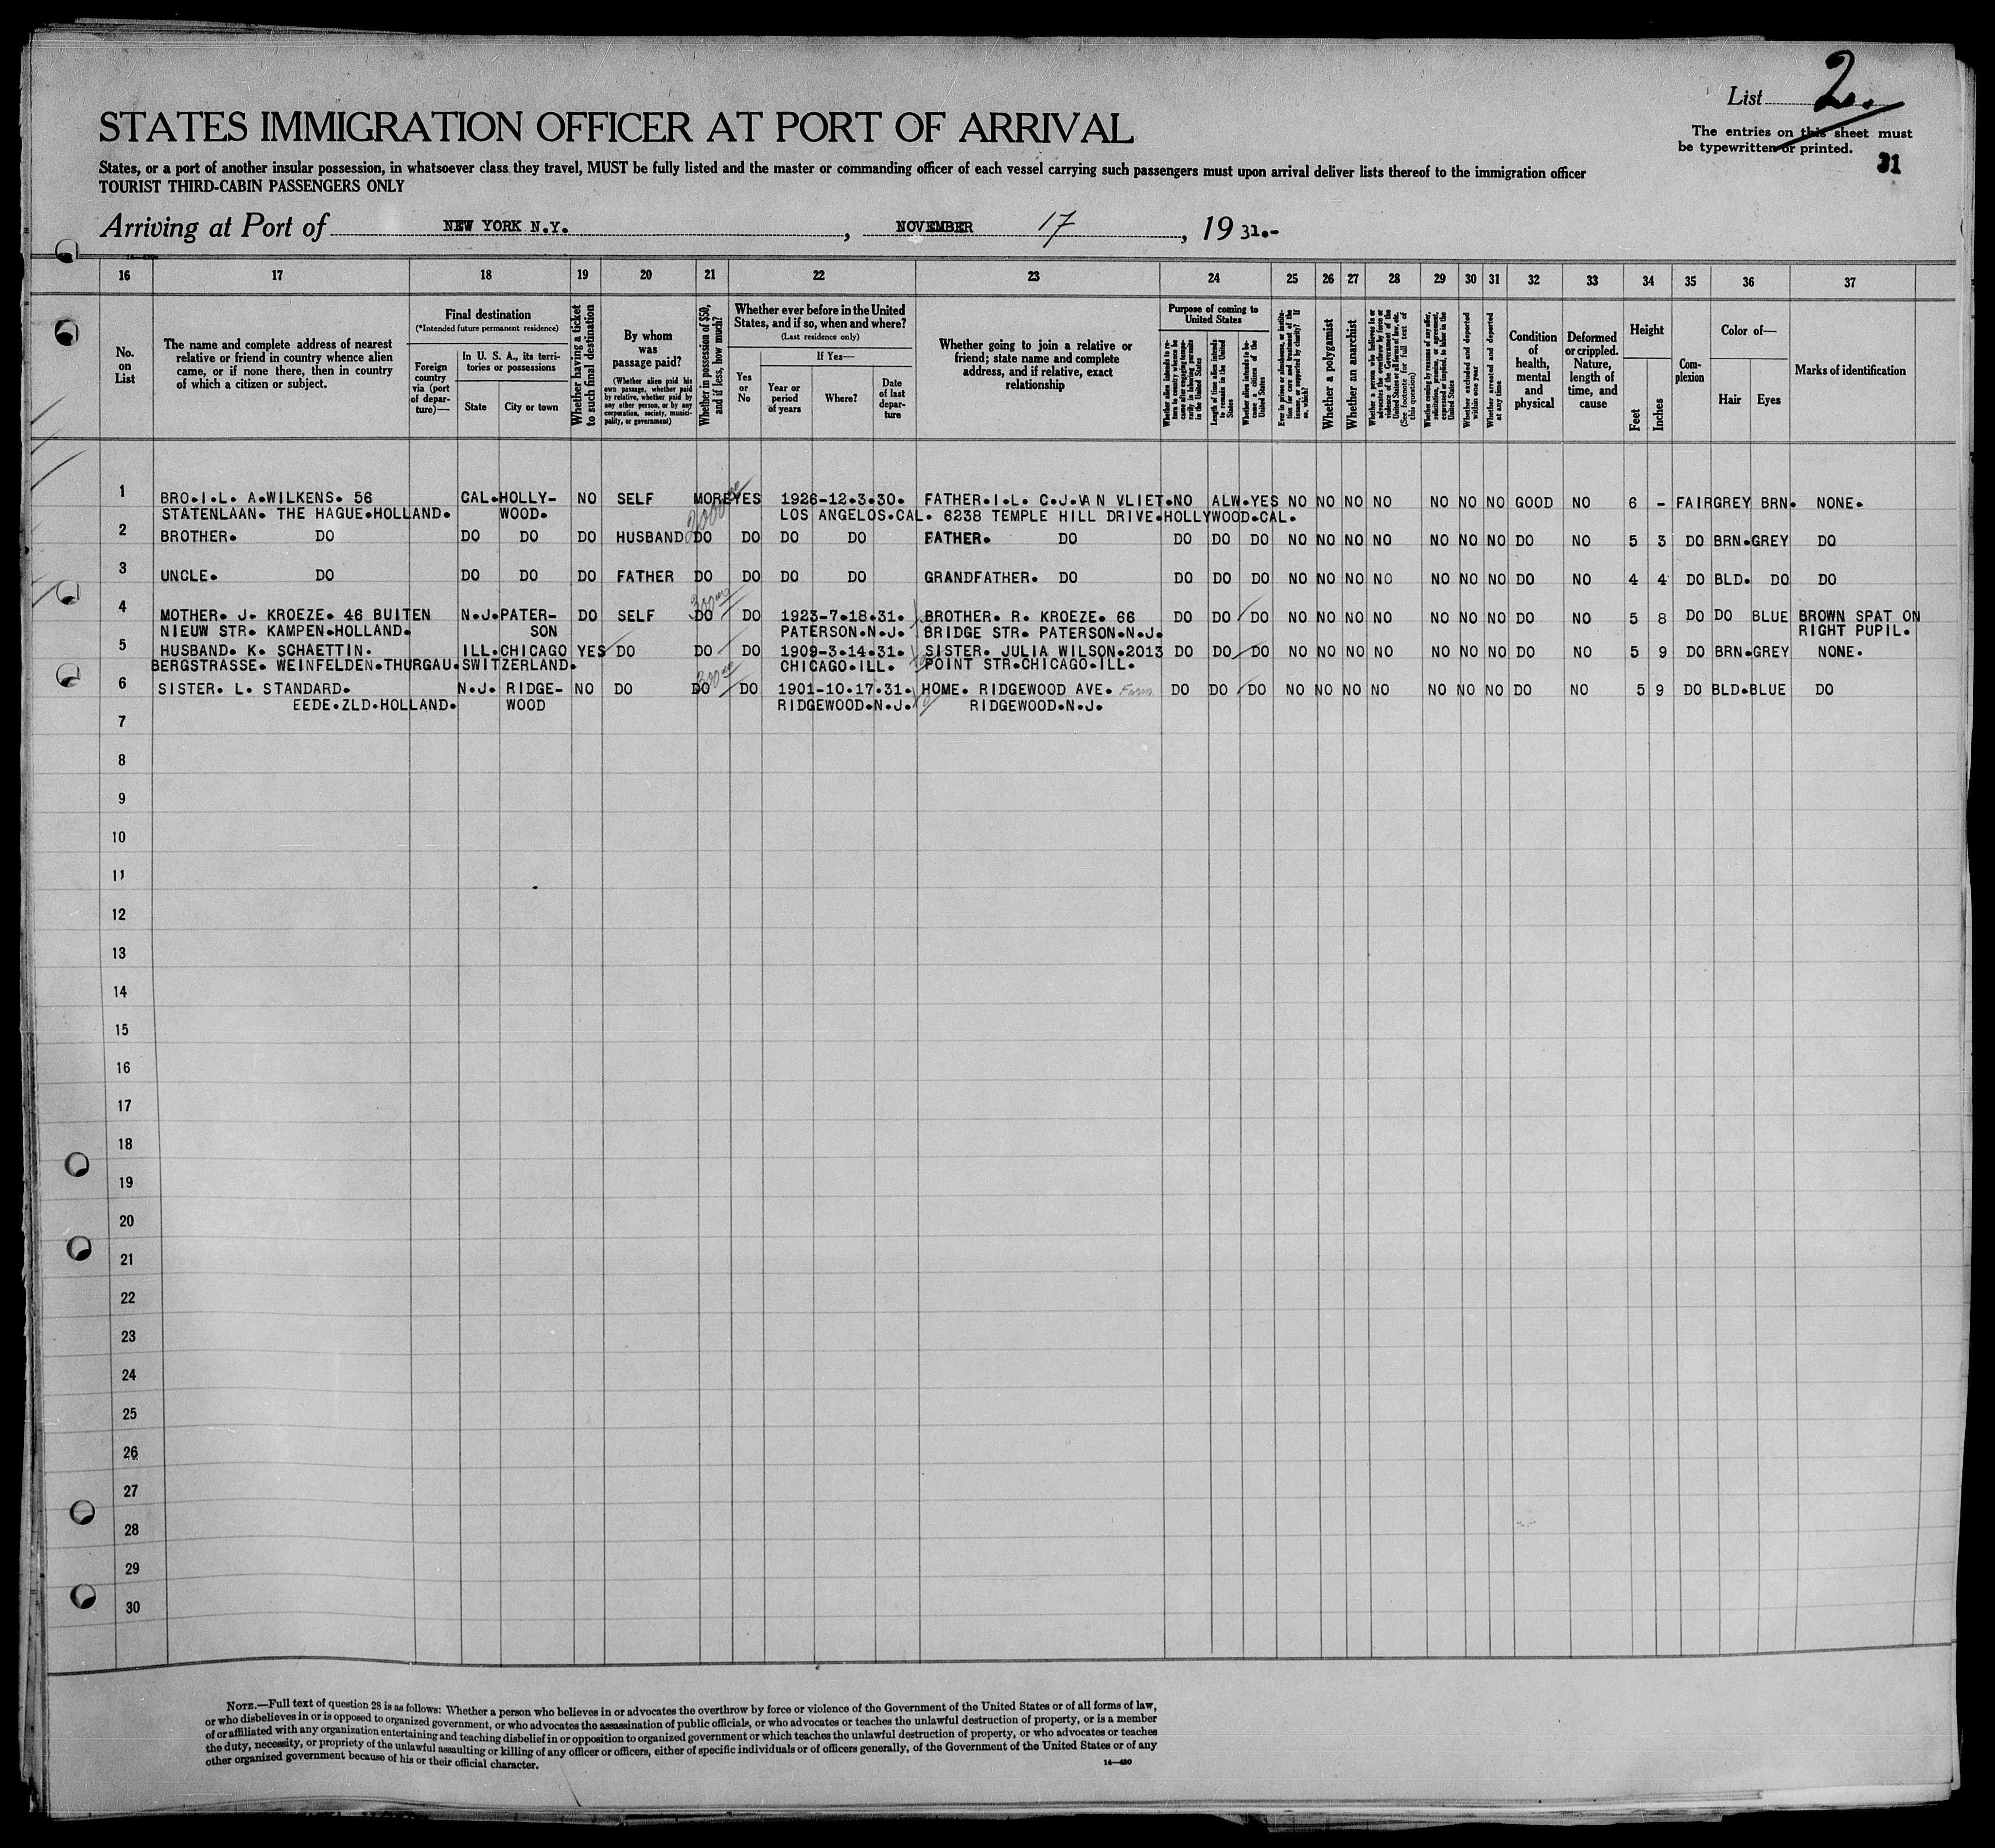 List 2.
STATES IMMIGRATION OFFICER AT PORT OF ARRIVAL
The entries on this sheet must
be typewritten or printed.
31
States, or a port of another insular possession, in whatsoever class they travel, MUST be fully listed and the master or commanding officer of each vessel carrying such passengers must upon arrival deliver lists thereof to the immigration officer
TOURIST THIRD-CABIN PASSENGERS ONLY
Arriving at Port of NEW YORK N.Y., NOVEMBER 17, 19 31.-
16 17 18 19 20 21 22 23 24 25 26 27 28 29 30 31 32 33 34 35 36 37
No.
on
List
The name and complete address of nearest
relative or friend in country whence alien
came, or if none there, then in country
of which a citizen or subject.
Final destination
(*Intended future permanent residence)
Foreign
country
via (port
of depar-
ture)—
In U. S. A., its terri-
tories or possessions
State
City or town
Whether having a ticket
to such final destination
By whom
was
passage paid?
(Whether alien paid his
own passage, whether paid
by relative, whether paid by
any other person, or by any
corporation, society, munici-
pality, or government)
Whether in possession of $50,
and if less, how much?
Whether ever before in the United
States, and if so, when and where?
(Last residence only)
Yes
or
No
If Yes—
Year or
period
of years
Where?
Date
of last
depar-
ture
Whether going to join a relative or
friend; state name and complete
address, and if relative, exact
relationship
Purpose of coming to
United States
Whether alien intends to re-
turn to country whence he
came after engaging tempo-
rarily in laboring pursuits
in the United States
Length of time alien intends
to remain in the United
States
Whether alien intends to be-
come a citizen of the
United States
Ever in prison or almshouse, or institu-
tion for care and treatment of the
insane, or supported by charity? If
so, which?
Whether a polygamist
Whether an anarchist
Whether a person who believes in or
advocates the overthrow by force or
violence of the Government of the
United States or all forms of law, etc.
(See footnote for full text of
this question)
Whether coming by reason of any offer,
solicitation, promise, or agreement,
expressed or implied, to labor in the
United States
Whether excluded and deported
within one year
Whether arrested and deported
at any time
Condition
of
health,
mental
and
physical
Deformed
or crippled.
Nature,
length of
time, and
cause
Height
Feet
Inches
Com-
plexion
Color of—
Hair
Eyes
Marks of identification
1 BRO.I.L. A.WILKENS. 56 CAL. HOLLY- NO SELF MORE YES 1926-12.3.30. FATHER.I.L. C.J.VAN VLIET. NO ALW. YES NO NO NO NO NO NO NO GOOD NO 6 - FAIR GREY BRN. NONE.
STATENLAAN. THE HAGUE.HOLLAND. WOOD. LOS ANGELOS.CAL. 6238 TEMPLE HILL DRIVE.HOLLYWOOD.CAL.
2 BROTHER. DO DO DO DO HUSBAND DO DO DO DO FATHER. DO DO DO DO NO NO NO NO NO NO NO DO NO 5 3 DO BRN. GREY DO
3 UNCLE. DO DO DO DO FATHER DO DO DO DO GRANDFATHER. DO DO DO DO NO NO NO NO NO NO NO DO NO 4 4 DO BLD. DO DO
4 MOTHER. J. KROEZE. 46 BUITEN N.J. PATER- DO SELF DO DO 1923-7.18.31. BROTHER. R. KROEZE. 66 DO DO DO NO NO NO NO NO NO NO DO NO 5 8 DO DO BLUE BROWN SPAT ON
NIEUW STR. KAMPEN.HOLLAND. SON PATERSON.N.J. BRIDGE STR. PATERSON.N.J. RIGHT PUPIL.
5 HUSBAND. K. SCHAETTIN. ILL. CHICAGO YES DO DO DO 1909-3.14.31. SISTER. JULIA WILSON.2013 DO DO DO NO NO NO NO NO NO NO DO NO 5 9 DO BRN. GREY NONE.
BERGSTRASSE. WEINFELDEN.THURGAU.SWITZERLAND. CHICAGO.ILL. POINT STR.CHICAGO.ILL.
6 SISTER. L. STANDARD. N.J. RIDGE- NO DO DO DO 1901-10.17.31. HOME. RIDGEWOOD AVE. DO DO DO NO NO NO NO NO NO NO DO NO 5 9 DO BLD. BLUE DO
EEDE.ZLD.HOLLAND. WOOD RIDGEWOOD.N.J. RIDGEWOOD.N.J.
7
8
9
10
11
12
13
14
15
16
17
18
19
20
21
22
23
24
25
26
27
28
29
30
NOTE.—Full text of question 28 is as follows: Whether a person who believes in or advocates the overthrow by force or violence of the Government of the United States or of all forms of law,
or who disbelieves in or is opposed to organized government, or who advocates the assassination of public officials, or who advocates or teaches the unlawful destruction of property, or is a member
of or affiliated with any organization entertaining and teaching disbelief in or opposition to organized government or which teaches the unlawful destruction of property, or who advocates or teaches
the duty, necessity, or propriety of the unlawful assaulting or killing of any officer or officers, either of specific individuals or of officers generally, of the Government of the United States or of any
other organized government because of his or their official character.
14—430